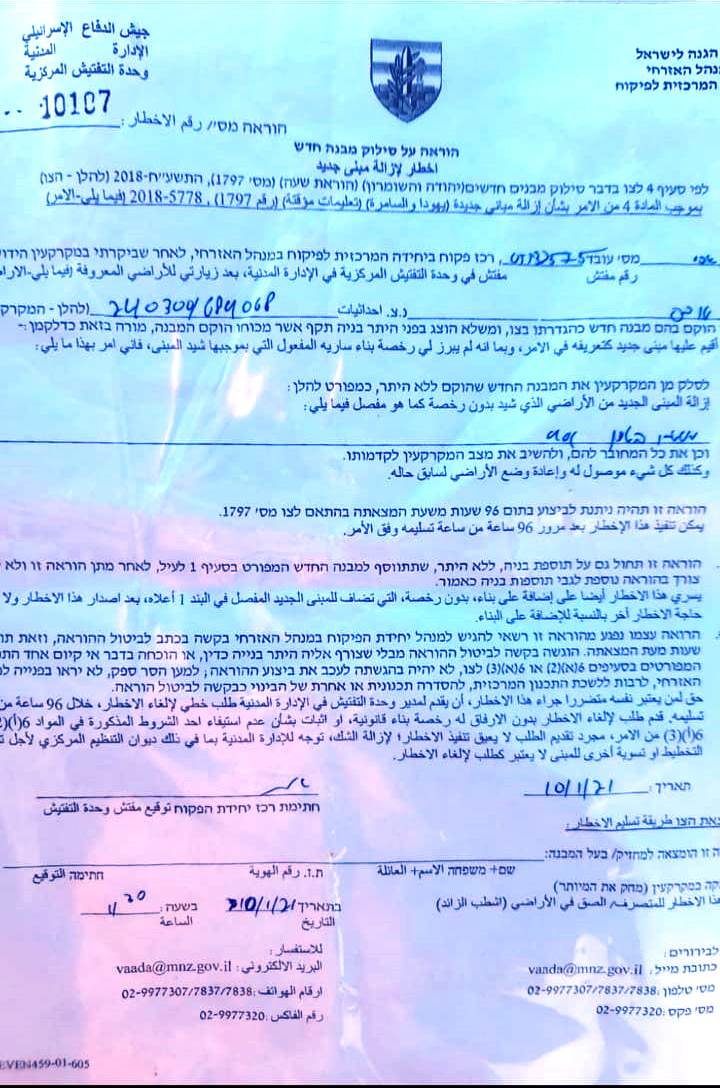 הגנה לישראל
המרכזית לפיקוח
جيش الدفاع الإسرائيلي
الإدارة المدنية
وحدة التفتيش المركزية
הוראה מסי/ رقم الاخطار: 10107
הוראה על סילוק מבנה חדש
اخطار لإزالة مبنى جديد
לפי סעיף 4 לצו בדבר סילוק מבנים חדשים(יהודה והשומרון) (הוראת שעה) (מסי 1797), התשע״ח-2018 (להלן - הצו)
بموجب المادة 4 من الامر بشأن إزالة مباني جديدة (يهودا والسامرة) (تعليمات مؤقتة) (رقم 1797) , 5778-2018 (فيما يلي-الامر)
מסי עובד, רכז פקוח ביחידה המרכזית לפיקוח במנהל האזרחי, לאחר שביקרתי במקרקעין
رقم مفتش مفتش في وحدة التفتيش المركزية في الإدارة المدنية, بعد زيارتي للأراضي المعروفة
נ.צ. احداثيات (להלן -
הוקם בהם מבנה חדש כהגדרתו בצו, ומשלא הוצג בפני היתר בניה תקף אשר מכוחו הוקם המבנה, מורה בזאת כדלקמן:-
أقيم عليها مبنى جديد كتعريفه في الامر, وبما انه لم يبرز لي رخصة بناء سارية المفعول التي بموجبها شيد المبنى, فاني امر بهذا ما يلي:
לסלק מן המקרקעין את המבנה החדש שהוקם ללא היתר, כמפורט להלן:
إزالة المبنى الجديد من الأراضي الذي شيد بدون رخصة كما هو مفصل فيما يلي:
וכן את כל המחובר להם, ולהשיב את מצב המקרקעין לקדמותו.
وكذلك كل شيء موصول له وإعادة وضع الأراضي لسابق حاله.
הוראה זו תהיה ניתנת לביצוע בתום 96 שעות משעת המצאתה בהתאם לצו מסי 1797.
يمكن تنفيذ هذا الإخطار بعد مرور 96 ساعة من ساعة تسليمه وفق الأمر.
הוראה זו תחול גם על תוספת בניה, ללא היתר, שתתווסף למבנה החדש המפורט בסעיף 1 לעיל, לאחר מתן הוראה זו ולא
צורך בהוראה נוספת לגבי תוספות בניה כאמור.
يسري هذا الاخطار أيضا على إضافة على بناء, بدون رخصة, التي تضاف للمبنى الجديد المفصل في البند 1 أعلاه, بعد اصدار هذا الاخطار ولا
حاجة الاخطار آخر بالنسبة للإضافة على البناء.
הרואה עצמו נפגע מהוראה זו רשאי להגיש למנהל יחידת הפיקוח במנהל האזרחי בקשה בכתב לביטול ההוראה, וזאת
שעות מעת המצאתה. הוגשה בקשה לביטול ההוראה מבלי שצורף אליה היתר בנייה כדין, או הוכחה בדבר אי קיום אחד
המפורטים בסעיפים 6(א)(2) או 6(א)(3) לצו, לא יהיה בהגשתה לעכב את ביצוע ההוראה; למען הסר ספק, לא יראו בפנייה
האזרחי, לרבות ללשכת התכנון המרכזית, להסדרה תכנונית או אחרת של הבינוי כבקשה לביטול הוראה.
حق لمن يعتبر نفسه متضررا جراء هذا الاخطار, أن يقدم لمدير وحدة التفتيش في الإدارة المدنية طلب خطي لإلغاء الاخطار, خلال 96 ساعة من
تسليمه. قدم طلب لإلغاء الاخطار بدون الارفاق له رخصة بناء قانونية, او اثبات بشأن عدم استيفاء احد الشروط المذكورة في المواد 6(أ)(2)
6(أ)(3) من الامر, مجرد تقديم الطلب لا يعيق تنفيذ الاخطار؛ لإزالة الشك, توجه للإدارة المدنية بما في ذلك ديوان التنظيم المركزي لأجل
التخطيط او تسوية أخرى للمبنى لا يعتبر كطلب لإلغاء الاخطار.
תאריך: 10/1/21
חתימת רכז יחידת הפקוח توقيع مفتش وحدة التفتيش
הצו طريقة تسليم الاخطار:
זו הומצאה למחזיק/ בעל המבנה:
שם+ משפחה الاسم+ العائلة ת.ז. رقم الهوية חתימה التوقيع
במקרקעין (מחק את המיותר)
هذا الاخطار للمتصرف الصق في الأراضي (اشطب الزائد)
בתאריך 10/1/21 בשעה:
التاريخ الساعة
לבירורים:
כתובת מייל: vaada@mnz.gov.il
מסי טלפון: 02-9977307/7837/7838
מסי פקס: 02-9977320
للاستفسار:
البريد الالكتروني: vaada@mnz.gov.il
ارقام الهواتف: 02-9977307/7837/7838
رقم الفاكس: 02-9977320
EVEN459-01-605